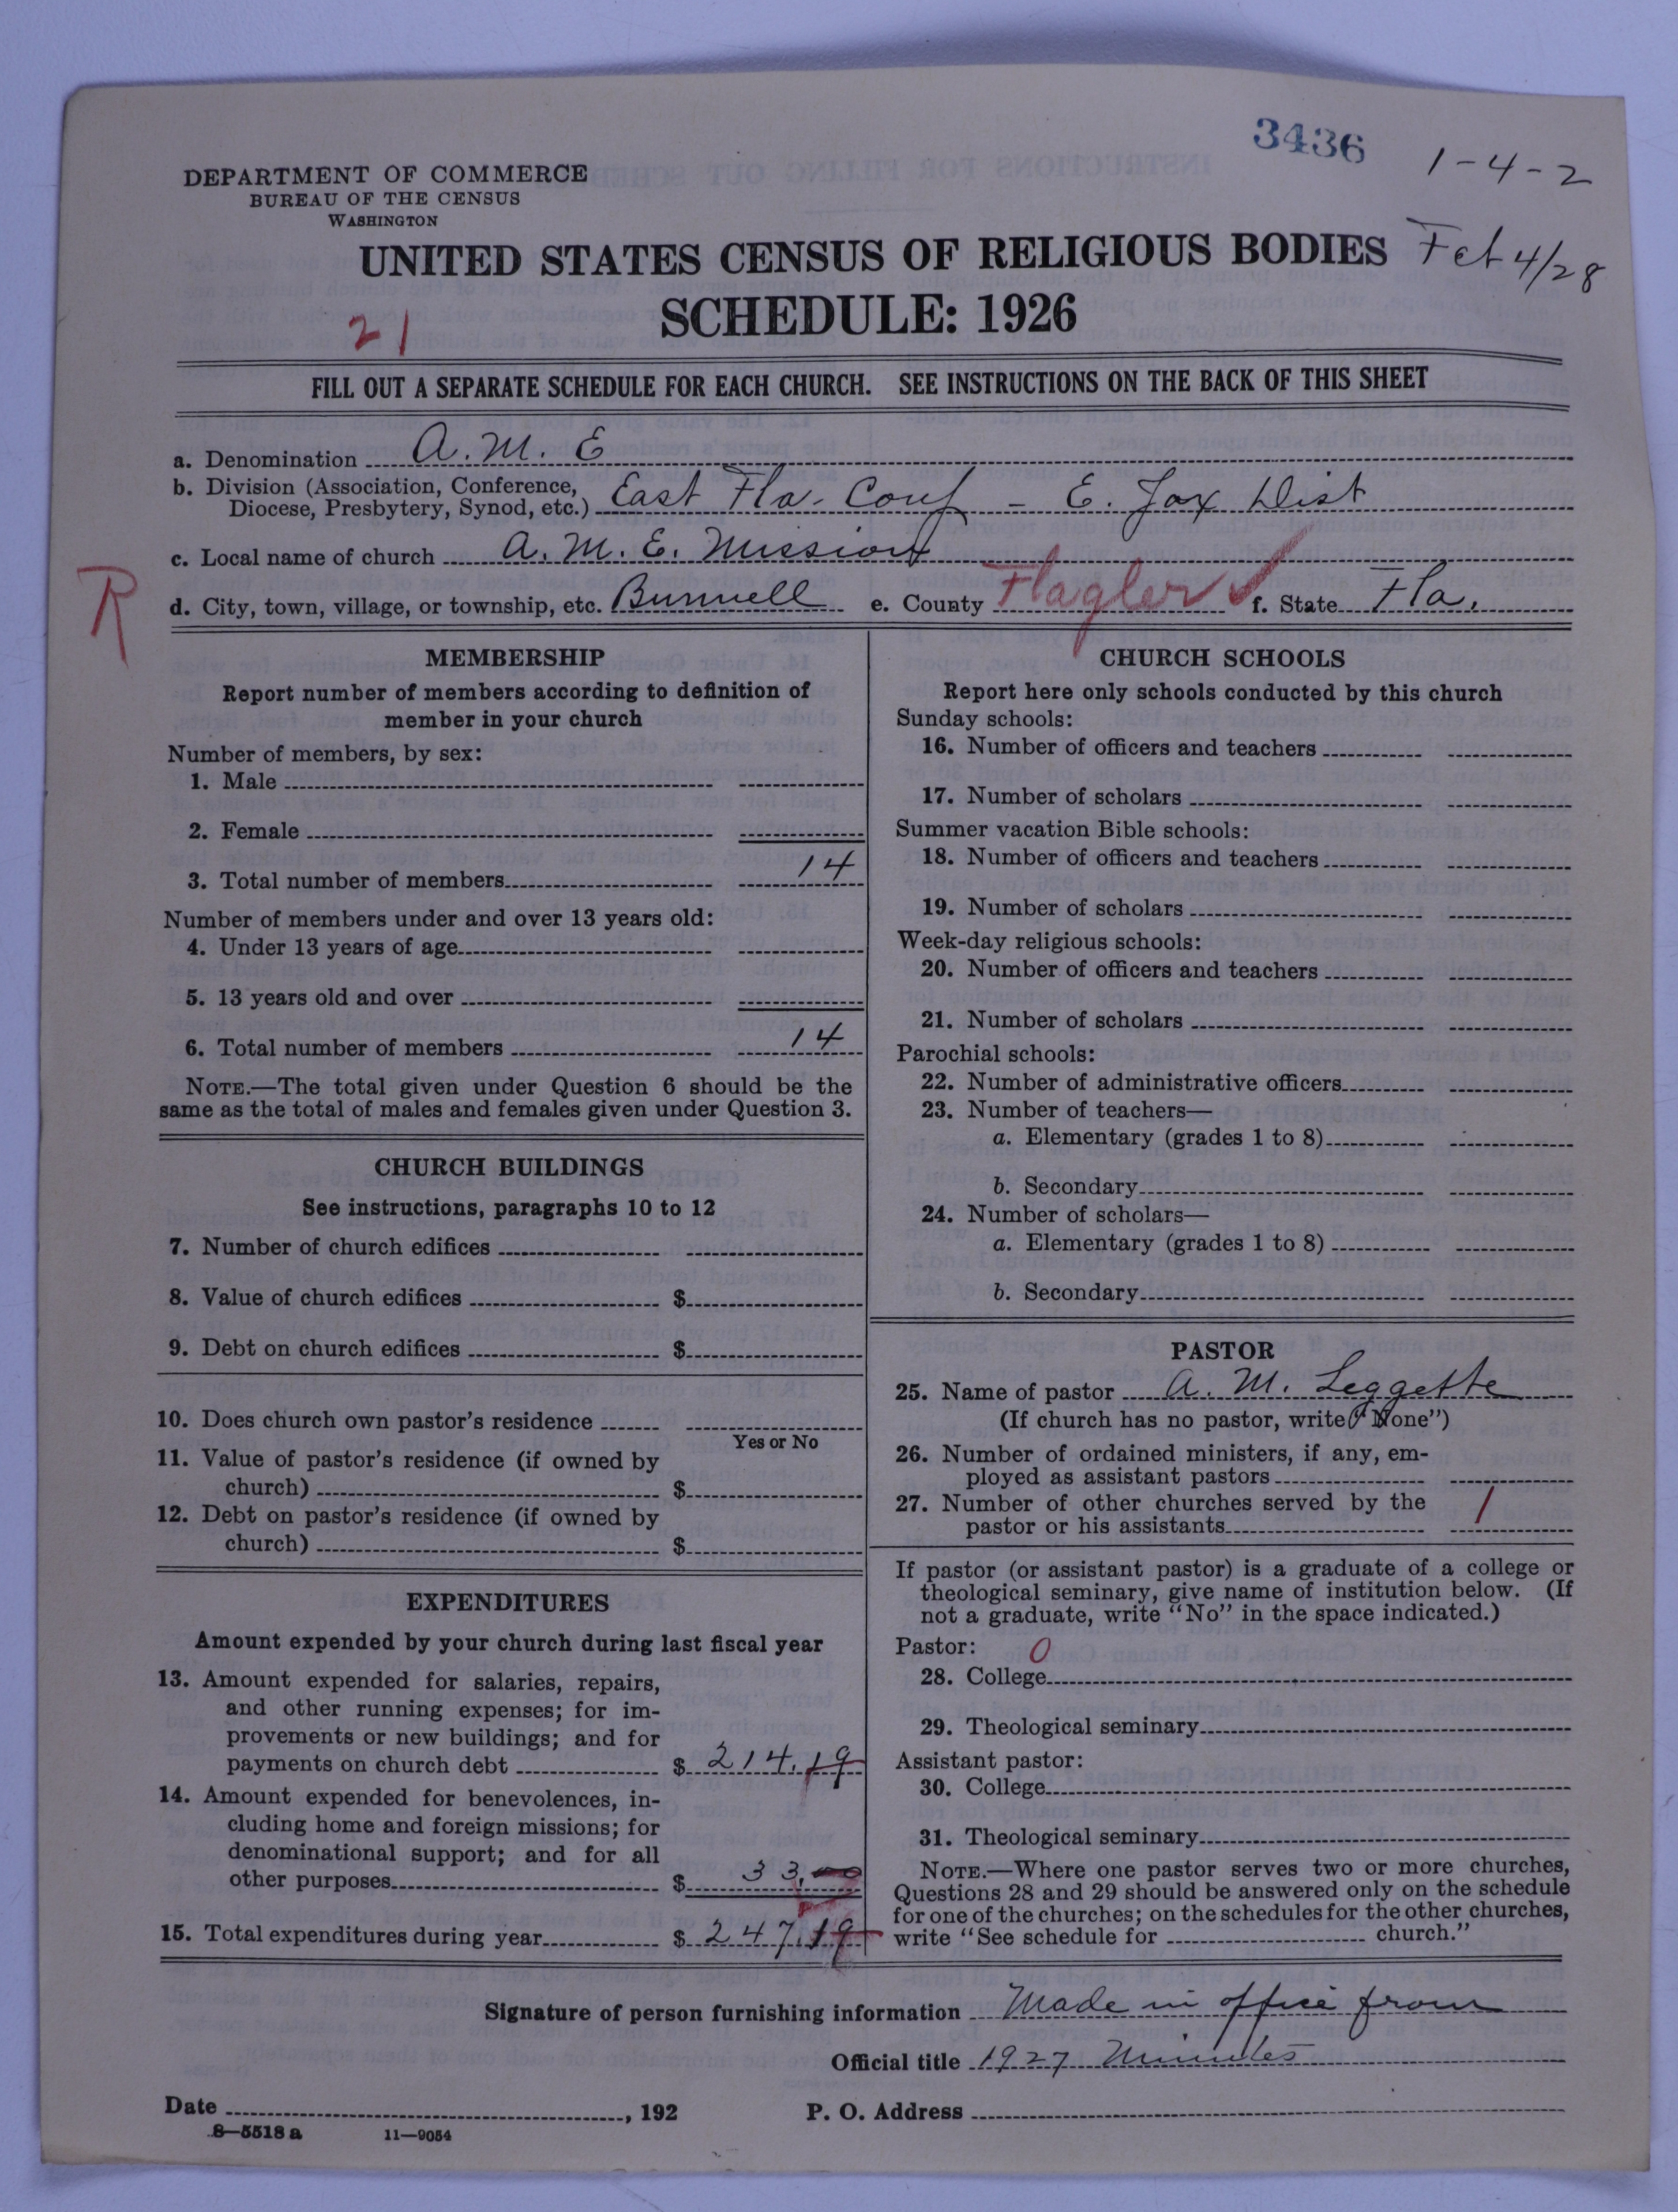 3436
1-4-2
DEPARTMENT OF COMMERCE
BUREAU OF THE CENSUS
WASHINGTON
UNITED STATES CENSUS OF RELIGIOUS BODIES
4/28
SCHEDULE: 1926
21
FILL OUT A SEPARATE SCHEDULE FOR EACH CHURCH. SEE INSTRUCTIONS ON THE BACK OF THIS SHEET
a. Denomination A. M. E
b. Division (Association, Conference,
Diocese, Presbytery, Synod, etc.) East Fla. Conf - E. Jax Dist
c. Local name of church A. M. E. Mission
R
d. City, town, village, or township, etc. Bunnell e. County Flagler f. State Fla.
MEMBERSHIP
Report number of members according to definition of
member in your church
Number of members, by sex:
1. Male
2. Female
3. Total number of members 14
Number of members under and over 13 years old:
4. Under 13 years of age
5. 13 years old and over
6. Total number of members 14
NOTE.—The total given under Question 6 should be the
same as the total of males and females given under Question 3.
CHURCH BUILDINGS
See instructions, paragraphs 10 to 12
7. Number of church edifices
8. Value of church edifices $
9. Debt on church edifices $
10. Does church own pastor's residence
Yes or No
11. Value of pastor's residence (if owned by
church) $
12. Debt on pastor's residence (if owned by
church) $
EXPENDITURES
Amount expended by your church during last fiscal year
13. Amount expended for salaries, repairs,
and other running expenses; for im-
provements or new buildings; and for
payments on church debt $ 214.19
14. Amount expended for benevolences, in-
cluding home and foreign missions; for
denominational support; and for all
other purposes $ 33.00
15. Total expenditures during year $ 247.19
CHURCH SCHOOLS
Report here only schools conducted by this church
Sunday schools:
16. Number of officers and teachers
17. Number of scholars
Summer vacation Bible schools:
18. Number of officers and teachers
19. Number of scholars
Week-day religious schools:
20. Number of officers and teachers
21. Number of scholars
Parochial schools:
22. Number of administrative officers
23. Number of teachers—
a. Elementary (grades 1 to 8)
b. Secondary
24. Number of scholars—
a. Elementary (grades 1 to 8)
b. Secondary
PASTOR
25. Name of pastor A. M. Leggette
(If church has no pastor, write "None")
26. Number of ordained ministers, if any, em-
ployed as assistant pastors
27. Number of other churches served by the
pastor or his assistants 1
If pastor (or assistant pastor) is a graduate of a college or
theological seminary, give name of institution below. (If
not a graduate, write "No" in the space indicated.)
Pastor: 0
28. College
29. Theological seminary
Assistant pastor:
30. College
31. Theological seminary
NOTE.—Where one pastor serves two or more churches,
Questions 28 and 29 should be answered only on the schedule
for one of the churches; on the schedules for the other churches,
write "See schedule for church."
Signature of person furnishing information Made in office from
Official title 1927 Minutes
Date , 192 P. O. Address
8—5518 a 11—9054